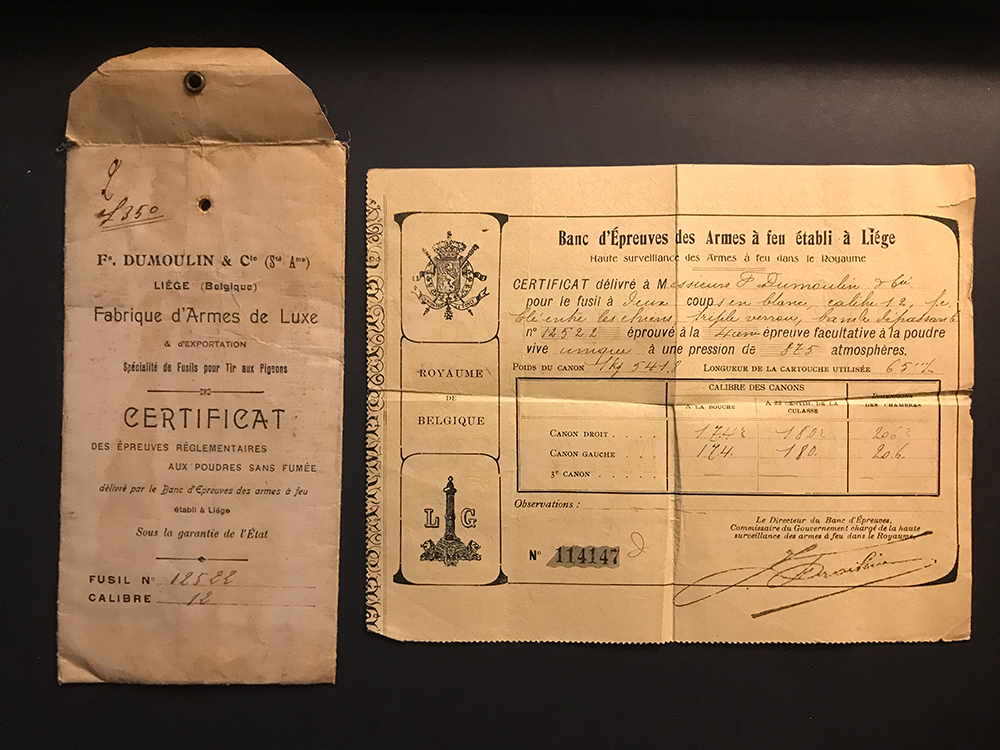 2
£350
Fs. DUMOULIN & Cie (Sté Ame)
LIÉGE (Belgique)
Fabrique d'Armes de Luxe
& d'EXPORTATION
Spécialité de Fusils pour Tir aux Pigeons
CERTIFICAT
DES ÉPREUVES RÉGLEMENTAIRES
AUX POUDRES SANS FUMÉE
délivré par le Banc d'Epreuves des armes à feu
établi à Liége
Sous la garantie de l'État
FUSIL No 12522
CALIBRE 12
ROYAUME
DE
BELGIQUE
L G
Banc d'Épreuves des Armes à feu établi à Liége
Haute surveillance des Armes à feu dans le Royaume
CERTIFICAT délivré à Messieurs F Dumoulin & Cie
pour le fusil à deux coups en blanc, calibre 12,
triple verrou, bande dépassant
no 12522 éprouvé à la 4em épreuve facultative à la poudre
vive unique à une pression de 875 atmosphères.
POIDS DU CANON 1kg 541.8 LONGUEUR DE LA CARTOUCHE UTILISÉE 65 m/m
CALIBRE DES CANONS DIMENSIONS DES CHAMBRES
A LA BOUCHE A 22 CENTIM. DE LA CULASSE
CANON DROIT . . . . 17.4 18.0 20.6
CANON GAUCHE . . . . 17.4. 18.0. 20.6.
3e CANON . . . . . —
Observations :
Le Directeur du Banc d'Épreuves,
Commissaire du Gouvernement chargé de la haute
surveillance des armes à feu dans le Royaume,
No 114147